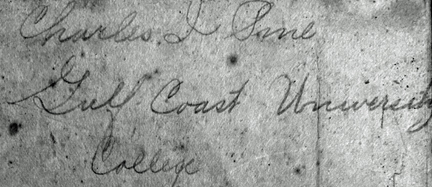 Charles I Pine
Gulf Coast University
College